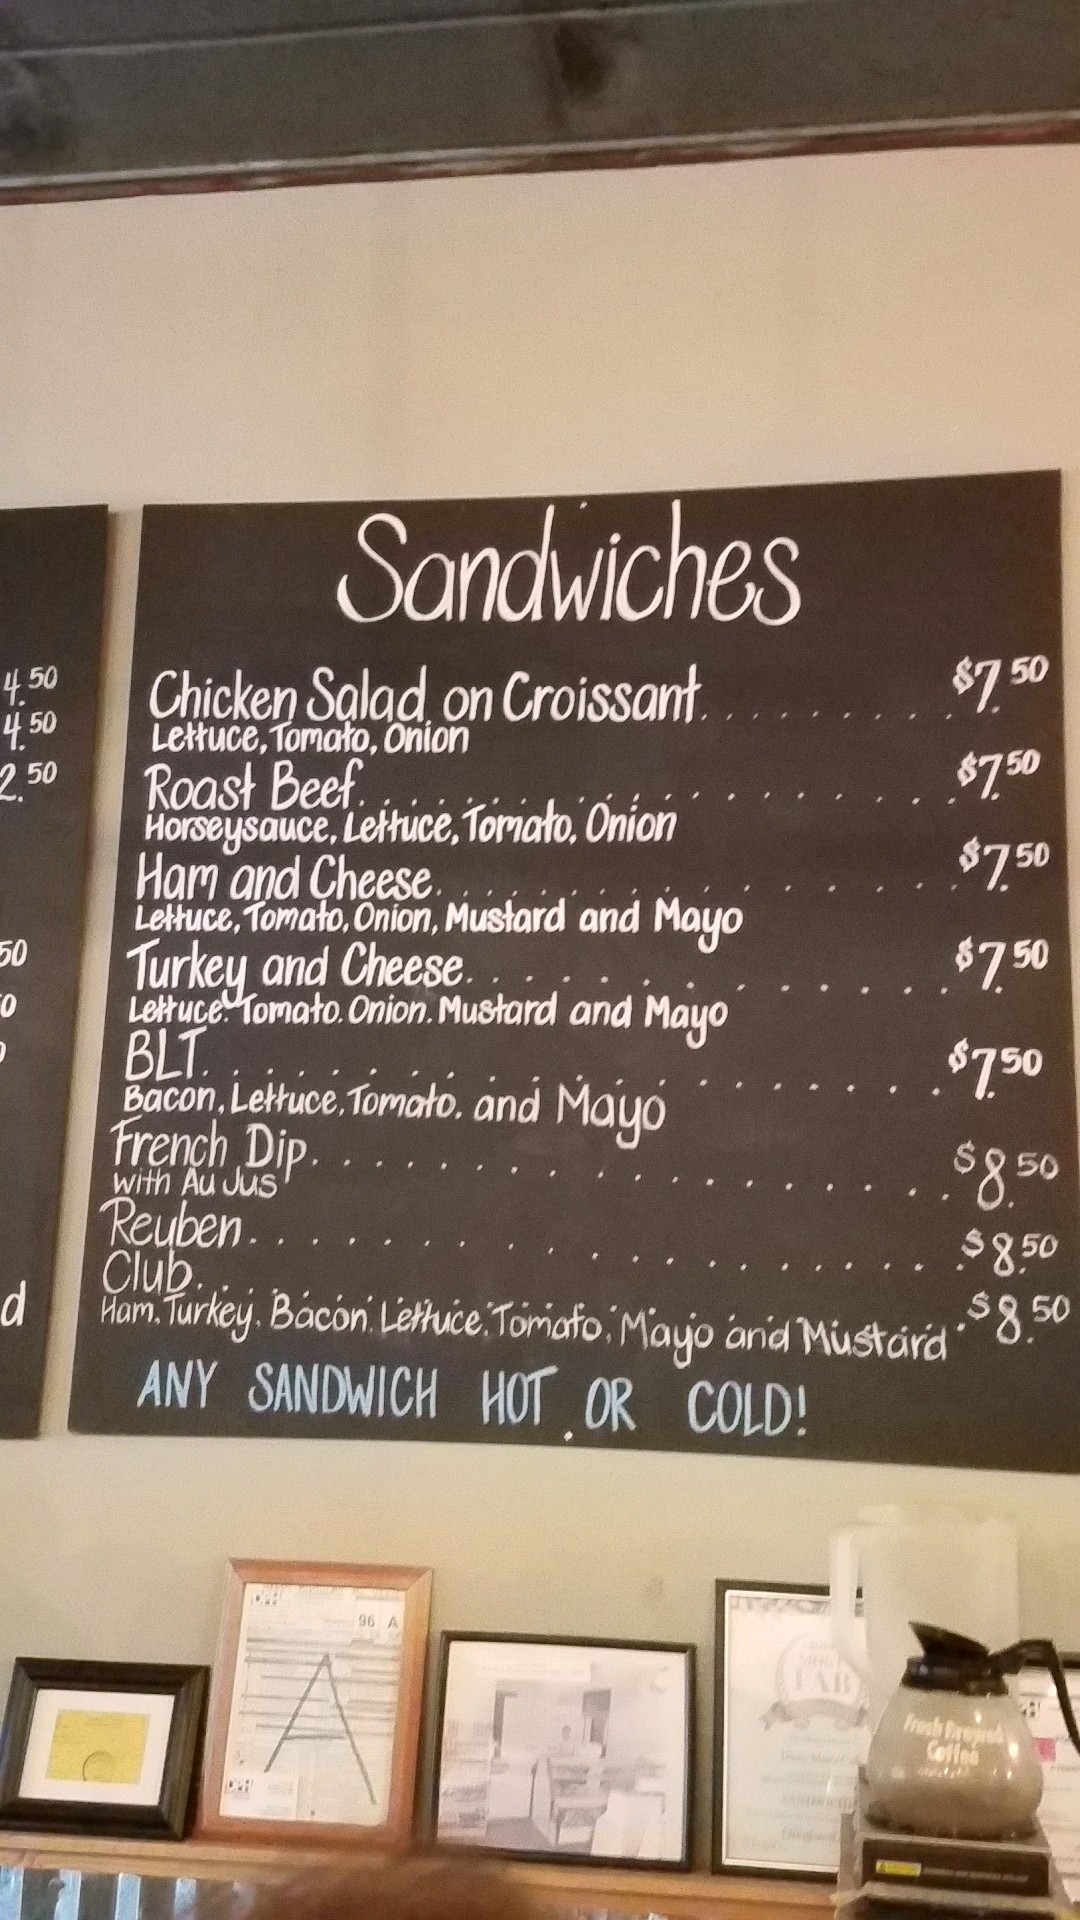 Sandwiches
Chicken Salad on Croissant. . . . . . . . . . $7.50
Lettuce, Tomato, Onion
Roast Beef. . . . . . . . . . . . . . . . . $7.50
Horseysauce, Lettuce, Tomato, Onion
Ham and Cheese. . . . . . . . . . . . . . $7.50
Lettuce, Tomato, Onion, Mustard and Mayo
Turkey and Cheese. . . . . . . . . . . . . $7.50
Lettuce. Tomato. Onion. Mustard and Mayo
BLT. . . . . . . . . . . . . . . . . . . . $7.50
Bacon, Lettuce, Tomato. and Mayo
French Dip. . . . . . . . . . . . . . . . . $8.50
with Au Jus
Reuben. . . . . . . . . . . . . . . . . . . $8.50
Club. . . . . . . . . . . . . . . . . . . . $8.50
Ham, Turkey, Bacon, Lettuce, Tomato, Mayo and Mustard
ANY SANDWICH HOT OR COLD!
4.50
4.50
2.50
50
d
96 A
A
DPH
FAB
Fresh Brewed
Coffee